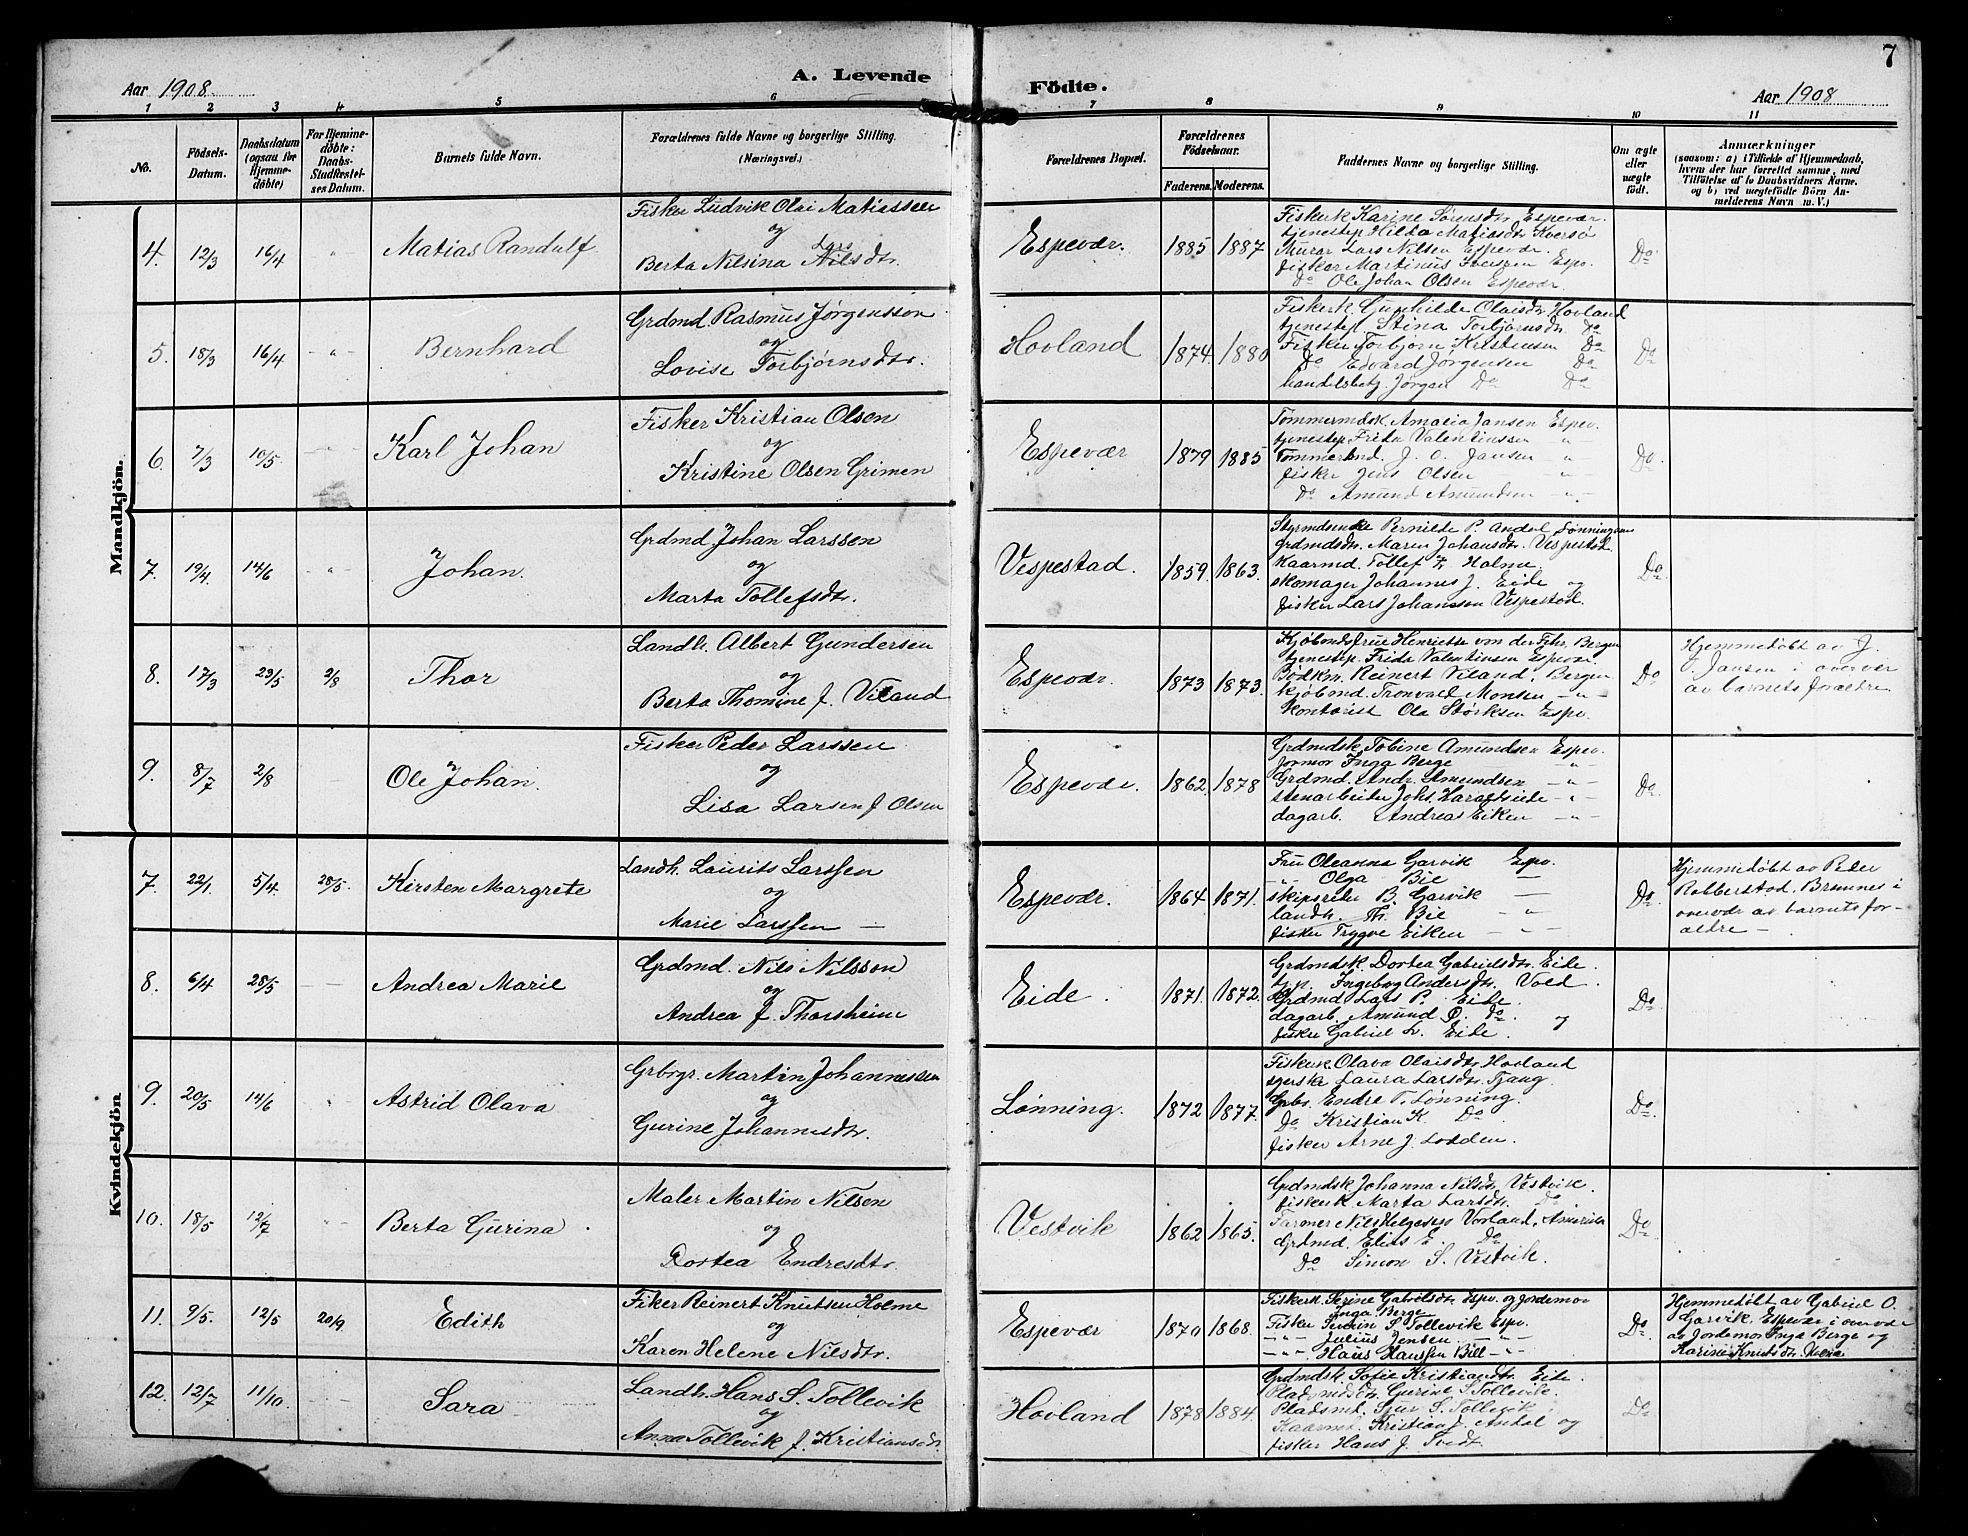 7
Aar 1908.
A. Levende
Födte.
Aar 1908
1 2 3 4 5 6 7 8 9 10 11
No.
Födsels-Datum.
Daabsdatum (ogsaa for Hjemme-döbte)
For Hjemme-döbte: Daabs-Stadfæstel-ses Datum.
Barnets fulde Navn.
Forældrenes fulde Navne og borgerlige Stilling.
(Næringsvei.)
Forældrenes Bopæl.
Forældrenes Födselsaar.
Faderens. Moderens.
Faddernes Navne og borgerlige Stilling.
Om ægte eller uægte födt.
Anmærkninger
(saasom: a) i Tilfælde af Hjemmedaab,
hvem der har forrettet samme, med
Tilföielse af to Daabsvidners Navne,
og b) ved uægtefödte Börn An-
melderens Navn m. V.)
Mandkjön.
4. 12/3 16/4 " Matias Randulf
Fisker Ludvik Olai Matiassen
og
Berta Nilsina Lars Nilsdtr.
Espevær. 1885 1887
Fiskerk Karine Sørensdtr Espevær.
tjenestep Hilda Matiasdtr Kversø
Murar Lars Nilsen Espevær.
fisker Martinus Iversen Espv.
Do Ole Johan Olsen Espevær.
Do
5. 18/3 16/4 - " - Bernhard
Grdmd Rasmus Jørgensson
og
Lovise Torbjørnsdtr.
Hovland 1874. 1880
Fiskerk Gunhilde Olaisdtr Hovland
tjenestep Stina Torbjørnsdtr Do
Fisker Torbjørn Kristensen Do
Do Edvard Jørgensen Do
handelsbetj. Jørgen Do Do
Do
6. 7/3 10/5. Karl Johan
Fisker Kristian Olsen
og
Kristine Olsen Grimen
Espevær 1879 1885
Tømmermdsk Amalia Jansen Espev.
tjenestep Frida Valentinssen "
Tømmermd J. O. Jansen "
fisker Jens Olsen "
Do Amund Amundsen "
Do
7. 19/4. 14/6 " Johan.
Grdmd Johan Larssen
og
Marta Tollefsdtr.
Vespestad. 1859. 1863.
Pernilde P. Andal Lønningen
Grdmdsdtr. Maren Johansdtr. Vespestad
Kaarmd. Tollef T. Holme.
skomager Johannes J. Eide og
fisker Lars Johanssen Vespestad.
Do
8. 17/3 23/5 2/8 Thor
Landh. Albert Gundersen
og
Berta Thomine f. Viland
Espevær. 1873 1873.
Kjøbmdsfrue Henriette von der Fehr. Bergen
tjenestep. Frida Valentinsen Espvæ.
Bödkm. Reinert Viland, Bergen
kjøbmd. Tronvald Monsen - " -
kontorist Ola Størksen Espv.
Do
Hjemmedøbt av J.
O. Jansen i overvær
av barnets forældre
9. 8/7 2/8 Ole Johan.
Fisker Peder Larssen
og
Lisa Larsen f. Olsen
Espevær. 1862. 1878
Grdmdsk Tobine Amundsen Espev.
Jormor Inga Berge "
Grdmd. Andr. Amundsen - " -
stenarbeider Johs. Haraldseide - " -
dagarb. Andreas Eiken - " -
Do.
Kvindekjön
7. 22/1. 5/4. 28/5. Kirsten Margrete
Landh. Laurits Larssen
og
Marie Larssen —
Espevær. 1864 1871.
Fru Oleanna Garvik Espv.
- " - Olga Bie —
skipsreder B. Garvik —
landh. Th. Bie - "
fisker Trygve Eiken - " -
Do
Hjemmedøbt av Peder
Robberstad, Bremnes i
overvær av barnets for-
ældre —
8. 6/4 28/5 Andrea Marie
Grdmd. Nils Nilsson
og
Andrea f. Thorsheim
Eide. 1871. 1872.
Grdmdsk. Dortea Gabrielsdtr. Eide.
tjp. Ingeborg Andersdtr. Vold.
Grdmd Lars P. Eide.
dagarb. Amund O. Do. og
fisker Gabriel L. Eide.
Do
9. 20/5 14/6 Astrid Olava
Grbrgr. Martin Johannessen
og
Gurine Johannesdtr.
Lønning. 1872 1877.
Fiskerk Olava Olaisdtr Hovland
syerske Laura Larsdtr. Tjang.
Gbr. Endre T. Lønning.
Do Kristian K. Do
fisker Arne J. Lodden.
Do.
10. 18/5 12/7 Berta Gurina.
Maler Martin Nilsen
og
Dortea Endresdtr.
Vestvik 1862 1865.
Grdmdsk Johanna Nilsdtr Vestvik.
fiskerk Marta Larsdtr. Do
Farmer Nils Helgesen Vorland. Amerika
Grdmd. Elias E. Do
Do Simon S. Vestvik.
Do
11. 9/5. 12/5 20/9. Edith
Fiker Reinert Knutsen Holme
og
Karen Helene Nilsdtr.
Espevær 1870 1868.
Fiskerk. Serine Gabrielsdtr Espv. og jordemor
Inga Berge
Fisker Severin S. Tollevik Espv.
- " - Julius Jensen - " -
- " - Hans Hanssen Bill - " -
Do
Hjemmedøbt av Gabriel O.
Garvik, Espevær i overvær
av Jordemor Inga Berge og
Karine Knutsdtr.
12. 12/7 11/10. Sara
Landh. Hans S. Tollevik
og
Anna Tollevik f. Kristiansdtr
Hovland 1878 1884.
Grdmdsk. Sofie Kristiansdtr. Eide.
Pladsmdsdtr. Gurine S. Tollevik.
Pladsmd. Sjur S. Tollevik.
Kaarmd. Kristian J. Andal og
fisker Hans J. Tvedt.
Do